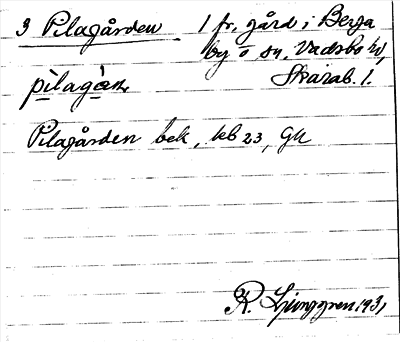 3 Pilagården 1 fr. gård i Berga
by o sn, Vadsbo hd,
pìlagàn Skarab. l.
Pilagården bek, kb 23, GK
R. Ljunggren 1931